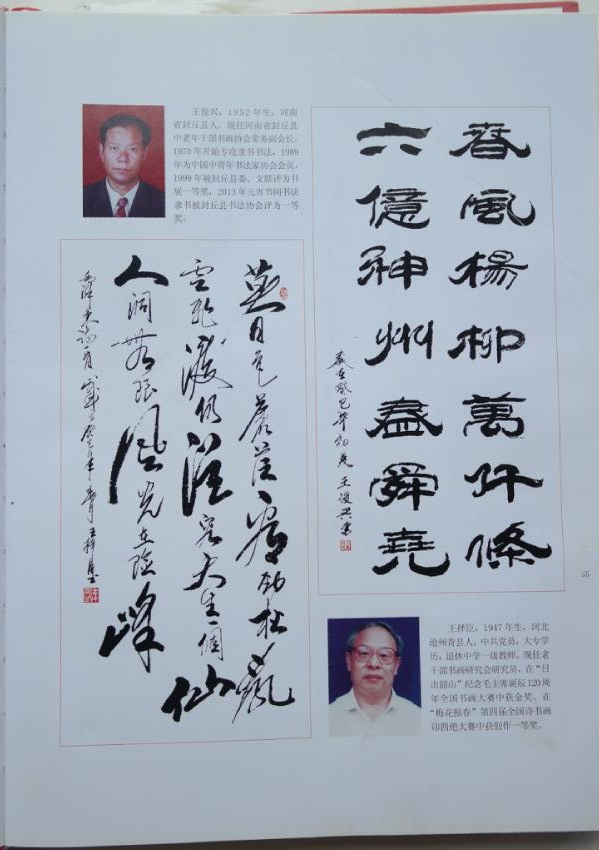 王俊兴，1952 年生，河南
省封丘县人。现任河南省封丘县
中老年干部书画协会常务副会长。
1970 年开始专攻隶书书法，1989
年为中国中青年书法家协会会员，
1999 年被封丘县委、文联评为书
展一等奖，2013 年元宵节间书法
隶书被封丘县书法协会评为一等
奖。
春風楊柳萬仟條
六億神州盡舜堯
歲在癸巳年
王俊兴書
暮色蒼茫看劲松
乱雲飛渡仍從容
天生一個仙
人洞
無限風光在险峰
毛泽東
55
王择臣，1947 年生，河北
沧州青县人，中共党员，大专学
历，退休中学一级教师。现任老
干部书画研究会研究员，在“日
出韶山”纪念毛主席诞辰 120 周
年全国书画大赛中获金奖。在
“梅花报春”第四届全国诗书画
印四绝大赛中获创作一等奖。